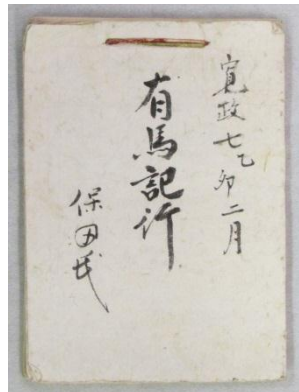 寛政七乙卯二月
有馬記行
保田氏